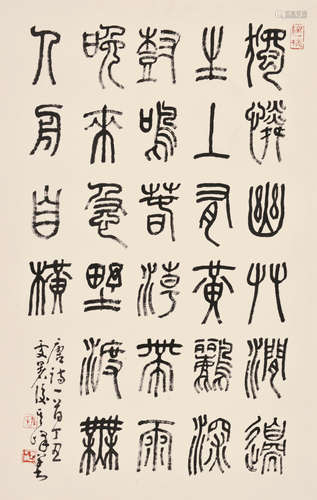 獨憐幽艸澗邊
生上有黃鸝深
樹鳴春潮帶雨
晚來急野渡無
人舟自橫
唐詩一首丁丑